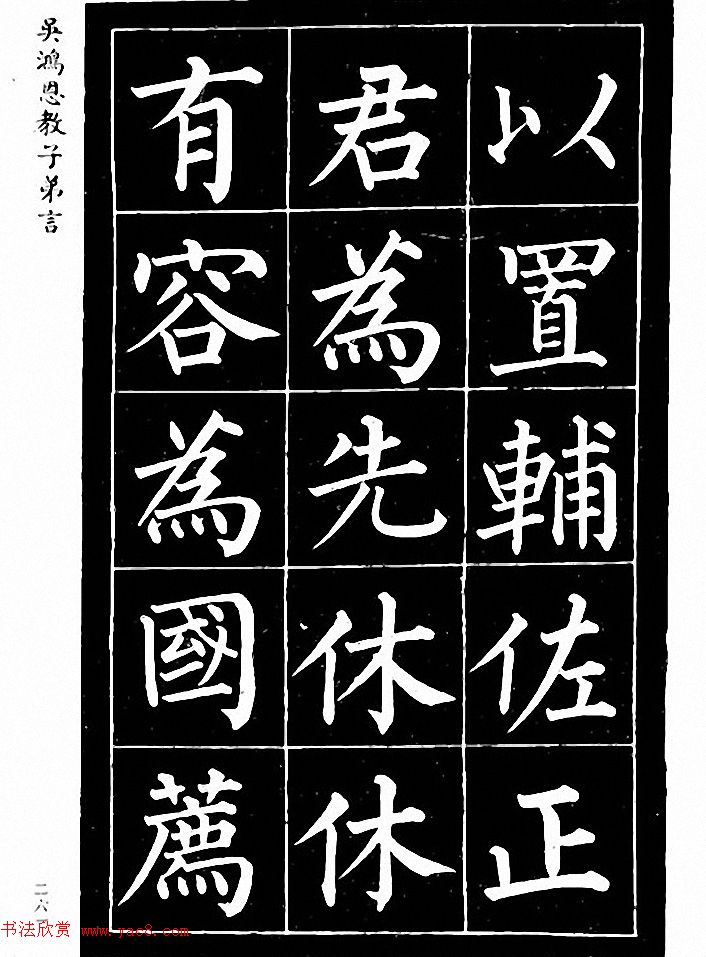 以置輔佐正
君為先休休
有容為國薦
吳鴻恩教子弟言
二六
书法欣赏 www.jac8.com